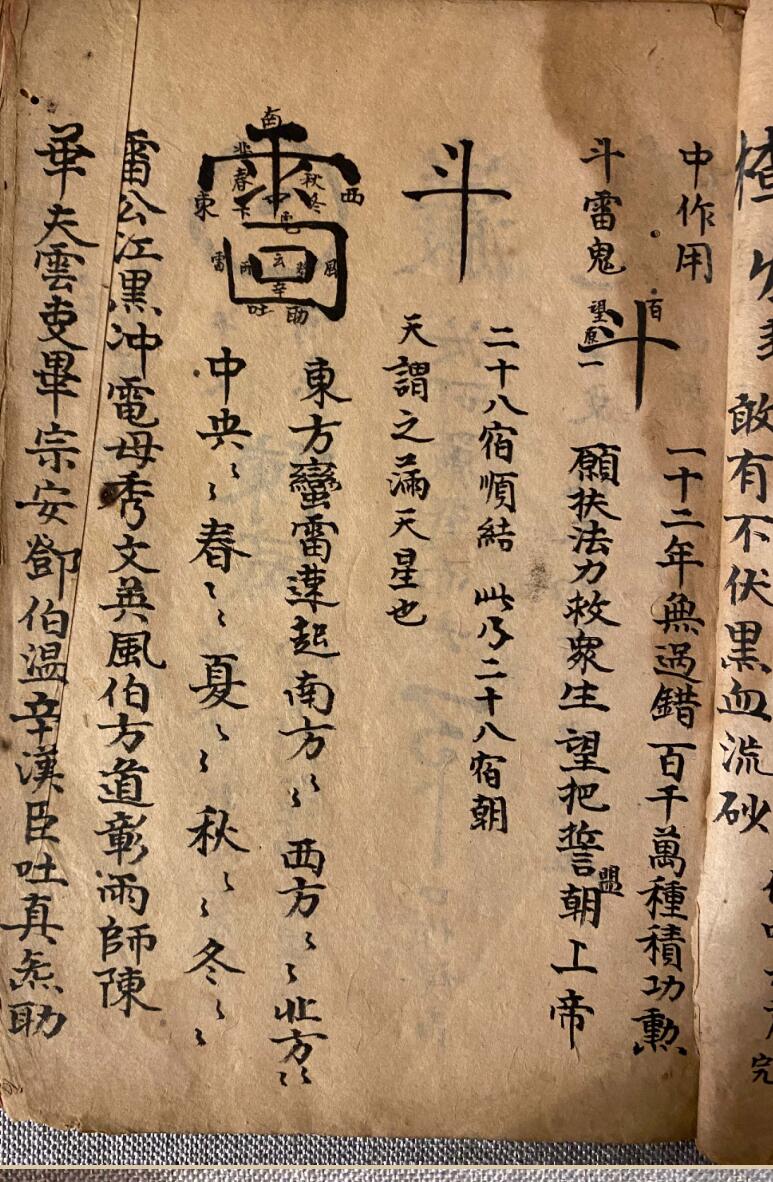 敢有不伏黑血流砂
中作用
斗雷鬼
一十二年無過錯 百千萬種積功勲
願扶法力救衆生 望把誓盟朝上帝
斗
二十八宿順結 此乃二十八宿朝
天謂之滿天星也
東方蠻雷達起南方〻 西方〻 北方〻
中央〻 春〻 夏〻 秋〻 冬〻
雷公江黑冲電母秀文英風伯方道彰雨師陳
華夫雲吏畢宗安鄧伯温辛漢臣吐真炁助